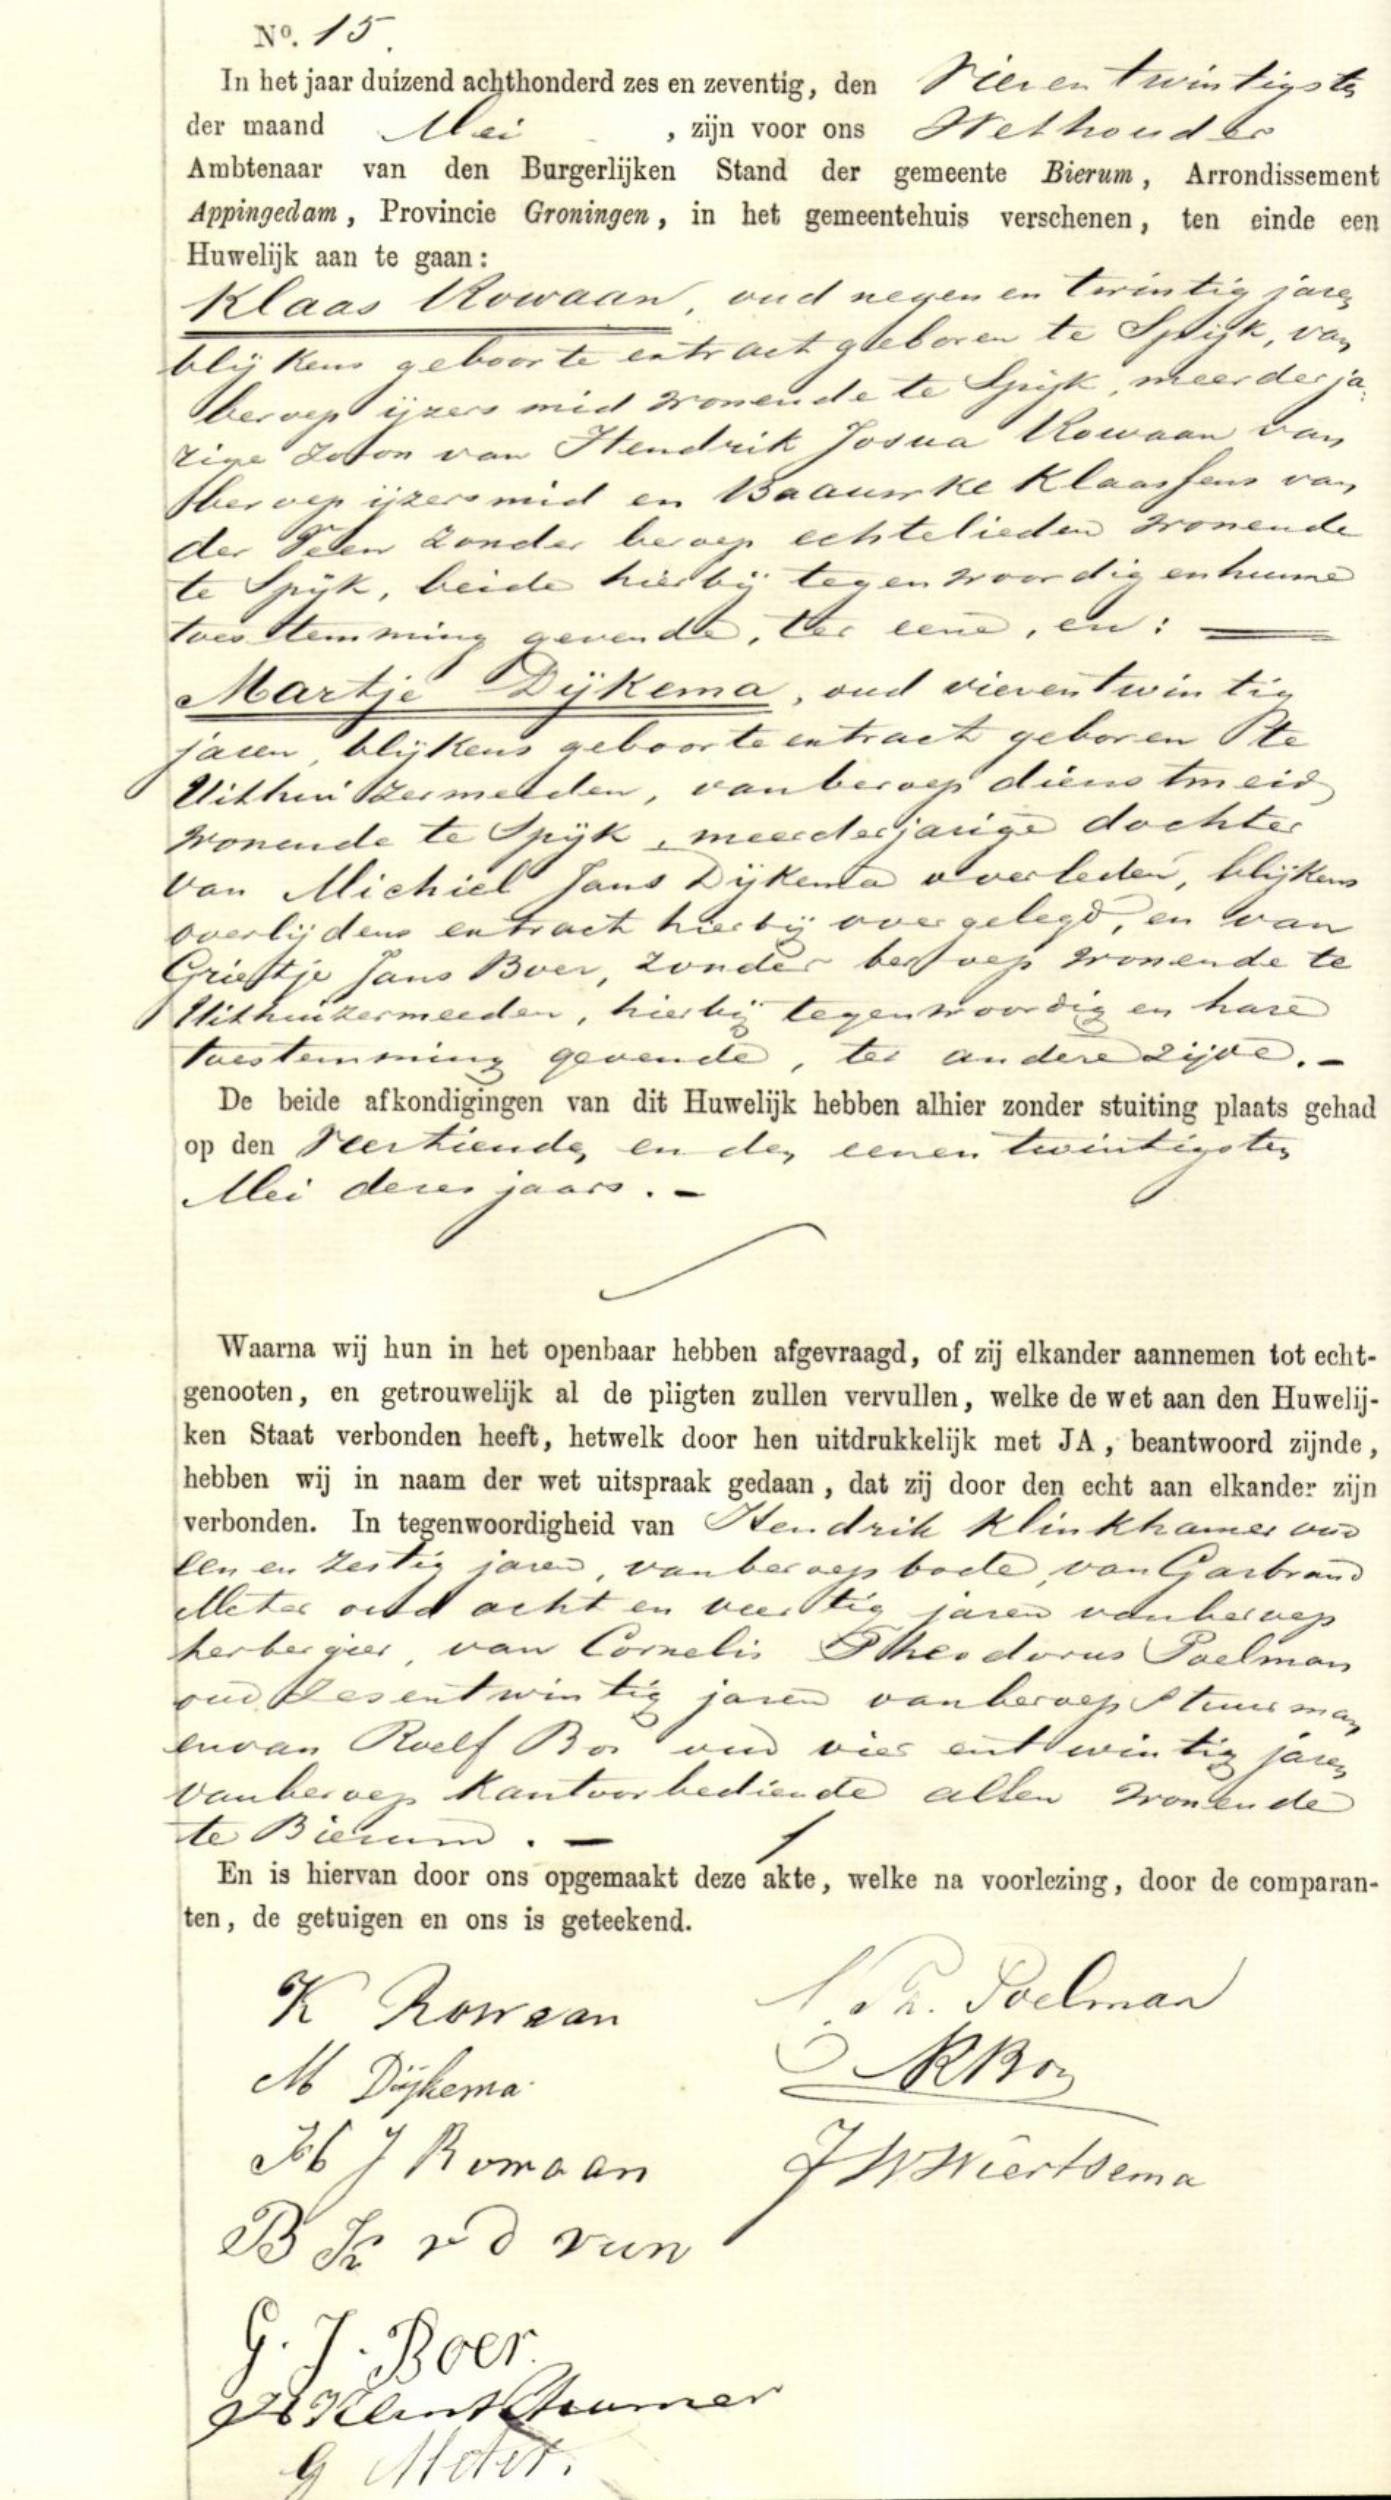 No. 15.
In het jaar duizend achthonderd zes en zeventig, den Vieren twintigste
der maand Mei , zijn voor ons Wethouder
Ambtenaar van den Burgerlijken Stand der gemeente Bierum, Arrondissement
Appingedam, Provincie Groningen, in het gemeentehuis verschenen, ten einde een
Huwelijk aan te gaan:
Klaas Rowaan, oud negen en twintig jaren
blijkens geboorte extract geboren te Spijk, van
beroep ijzersmid wonende te Spijk, meerderja-
rige zoon van Hendrik Josua Rowaan van
beroep ijzersmid en Baauwke Klaassens van
der Veen zonder beroep echtelieden wonende
te Spijk, beide hierbij tegenwoordig en hunne
toestemming gevende, ter eene, en:
Martje Dijkema, oud vierentwintig
jaren, blijkens geboorte extract geboren te
Uithuizermeeden, van beroep dienstmeid
wonende te Spijk, meerderjarige dochter
van Michiel Jans Dijkema overleden, blijkens
overlijdens extract hierbij overgelegd, en van
Grietje Jans Boer, zonder beroep wonende te
Uithuizermeeden, hierbij tegenwoordig en hare
toestemming gevende, ter andere zijde. -
De beide afkondigingen van dit Huwelijk hebben alhier zonder stuiting plaats gehad
op den Veertienden en den eenen twintigsten
Mei dezes jaars. -
Waarna wij hun in het openbaar hebben afgevraagd, of zij elkander aannemen tot echt-
genooten, en getrouwelijk al de pligten zullen vervullen, welke de wet aan den Huwelij-
ken Staat verbonden heeft, hetwelk door hen uitdrukkelijk met JA, beantwoord zijnde,
hebben wij in naam der wet uitspraak gedaan, dat zij door den echt aan elkander zijn
verbonden. In tegenwoordigheid van Hendrik Klinkhamer oud
een en zestig jaren, van beroep bode, van Garbrand
Meter oud acht en veertig jaren van beroep
herbergier, van Cornelis Theodorus Poelman
oud zesentwintig jaren van beroep stuurman
en van Roelf Bos oud vier entwintig jaren
van beroep kantoorbediende allen wonende
te Bierum. -
En is hiervan door ons opgemaakt deze akte, welke na voorlezing, door de comparan-
ten, de getuigen en ons is geteekend.
K Rowaan
M Dijkema
H J Rowaan
B K v d
G. J. Boer.
H Klinkhamer
G Meter.
C. Th. Poelman
R Bos
J W Wiertsema